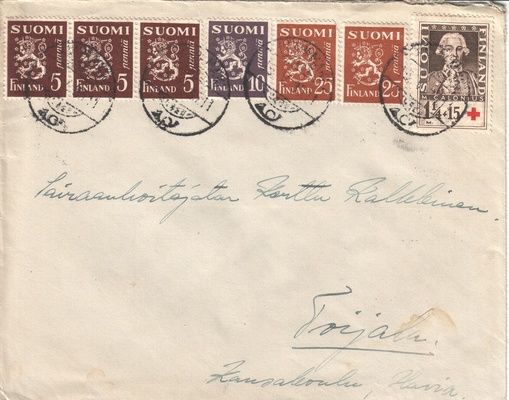 SUOMI SUOMI SUOMI SUOMI SUOMI SUOMI SUOMI FINLAND
penniä penniä penniä penniä penniä penniä
FINLAND 5 FINLAND 5 FINLAND 5 FINLAND 10 FINLAND 25 FINLAND 25
M. CALONIUS
1¼+15
Sairaanhoitajatar Kerttu
Toijala.
Kansakoulu,